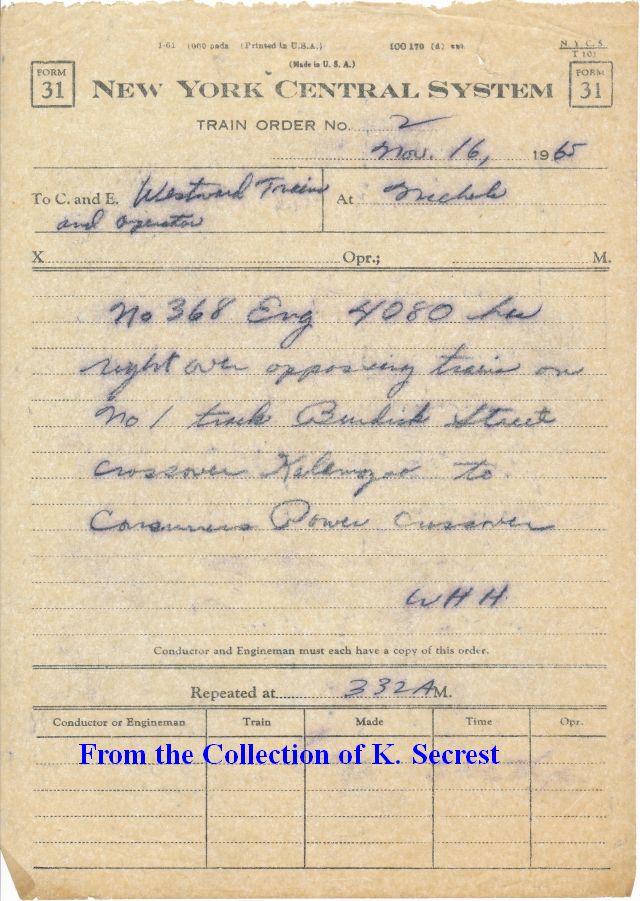 1-61 1000 pads (Printed in U.S.A.)
N.Y.C.S.
T 101
(Made in U. S. A.)
FORM 31
NEW YORK CENTRAL SYSTEM
FORM 31
TRAIN ORDER No. 2
Nov. 16, 1965
To C. and E. Westward Trains
and operator
At Nichols
X Opr.; M.
No 368 Eng 4080 has
right over opposing trains on
No 1 track Burdick Street
crossover Kalamazoo to
Consumers Power Crossover
WHH
Conductor and Engineman must each have a copy of this order.
Repeated at 332A M.
Conductor or Engineman Train Made Time Opr.
From the Collection of K. Secrest